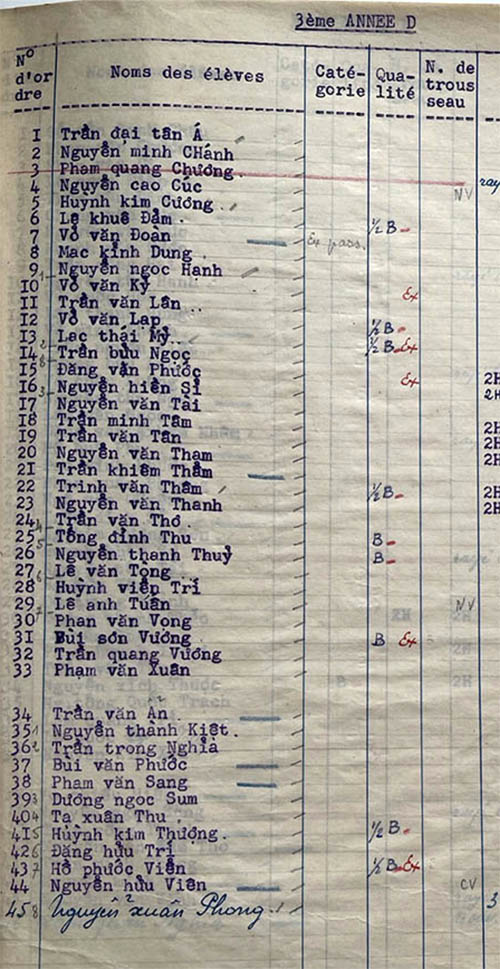 3ème ANNEE D
N° d'or dre Noms des élèves Caté- gorie Qua- lité N. de trous seau
I Trần đại tân Á
2 Nguyễn minh CHánh
3 Phạm quang Chương.
4 Nguyễn cao Cúc
5 Huỳnh kim Cương.
6 Lê khuê Đảm. ½ B
7 Võ văn Đoàn Ex pass.
8 Mạc kính Dung.
9 Nguyễn ngọc Hạnh
IO Võ văn Kỷ Ex
II Trần văn Lân
I2 Võ văn Lạp ½ B
I3 Lạc thái Mỹ ½ B Ex
I4 Trần bửu Ngọc
I5 Đặng văn Phước Ex 2H
I6 Nguyễn hiền Sĩ 2H
I7 Nguyễn văn Tài
I8 Trần minh Tâm 2H
I9 Trần văn Tấn 2H
20 Nguyễn văn Thạm 2H
2I Trần khiêm Thẩm
22 Trinh văn Thâm ½ B 2H
23 Nguyễn văn Thanh 2H
24 Trần văn Thơ
25 Tống đình Thu B
26 Nguyễn thanh Thuỷ B
27 Lê văn Tòng
28 Huỳnh viễn Trí
29 Lê anh Tuấn NV
30 Phan văn Vọng
3I Bùi sơn Vương B Ex
32 Trần quang Vương
33 Phạm văn Xuân
34 Trần văn Ân
35 1 Nguyễn thành Kiệt.
36 2 Trần trọng Nghĩa
37 Bùi văn Phước
38 Phạm văn Sang
39 3 Dương ngọc Sum
40 4 Tạ xuân Thu
4I 5 Huỳnh kim Thượng. ½ B
42 6 Đặng hữu Trí
43 7 Hồ phước Viên ½ B Ex
44 Nguyễn hữu Viên CV
45 8 Nguyễn xuân Phong 3